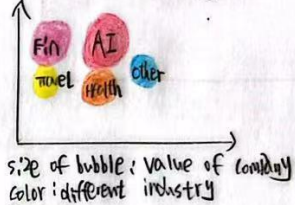 Fin
AI
Travel
Health
other
size of bubble : value of company
color : different industry